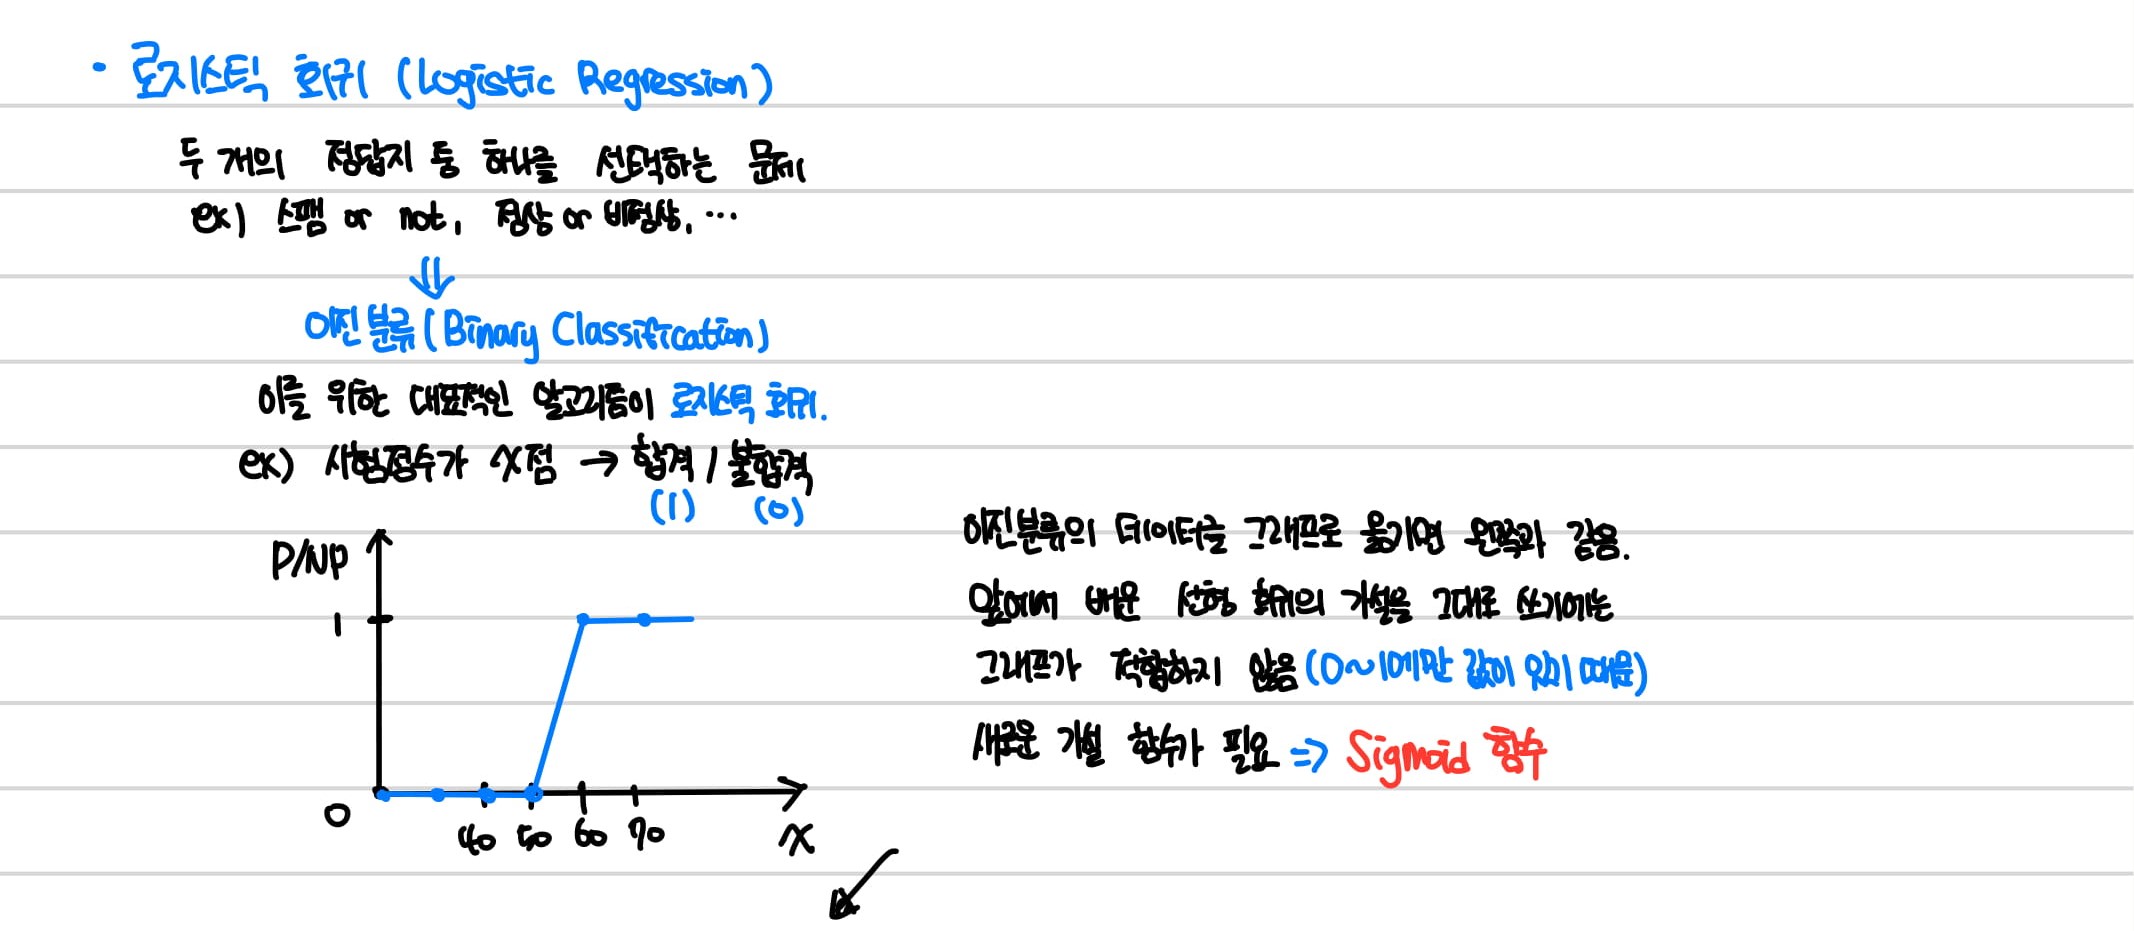 • 로지스틱 회귀 (Logistic Regression)
두 개의 정답지 중 하나를 선택하는 문제
ex) 스팸 or not, 정상 or 비정상, …
⇓
이진 분류 (Binary Classification)
이를 위한 대표적인 알고리즘이 로지스틱 회귀.
ex) 시험점수가 x점 → 합격 / 불합격
(1) (0)
P/NP
1
0
40 50 60 70
x
이진분류의 데이터를 그래프로 옮기면 왼쪽과 같음.
앞에서 배운 선형 회귀의 가설을 그대로 쓰기에는
그래프가 적합하지 않음 (0~1에만 값이 있기 때문)
새로운 가설 함수가 필요 => Sigmoid 함수